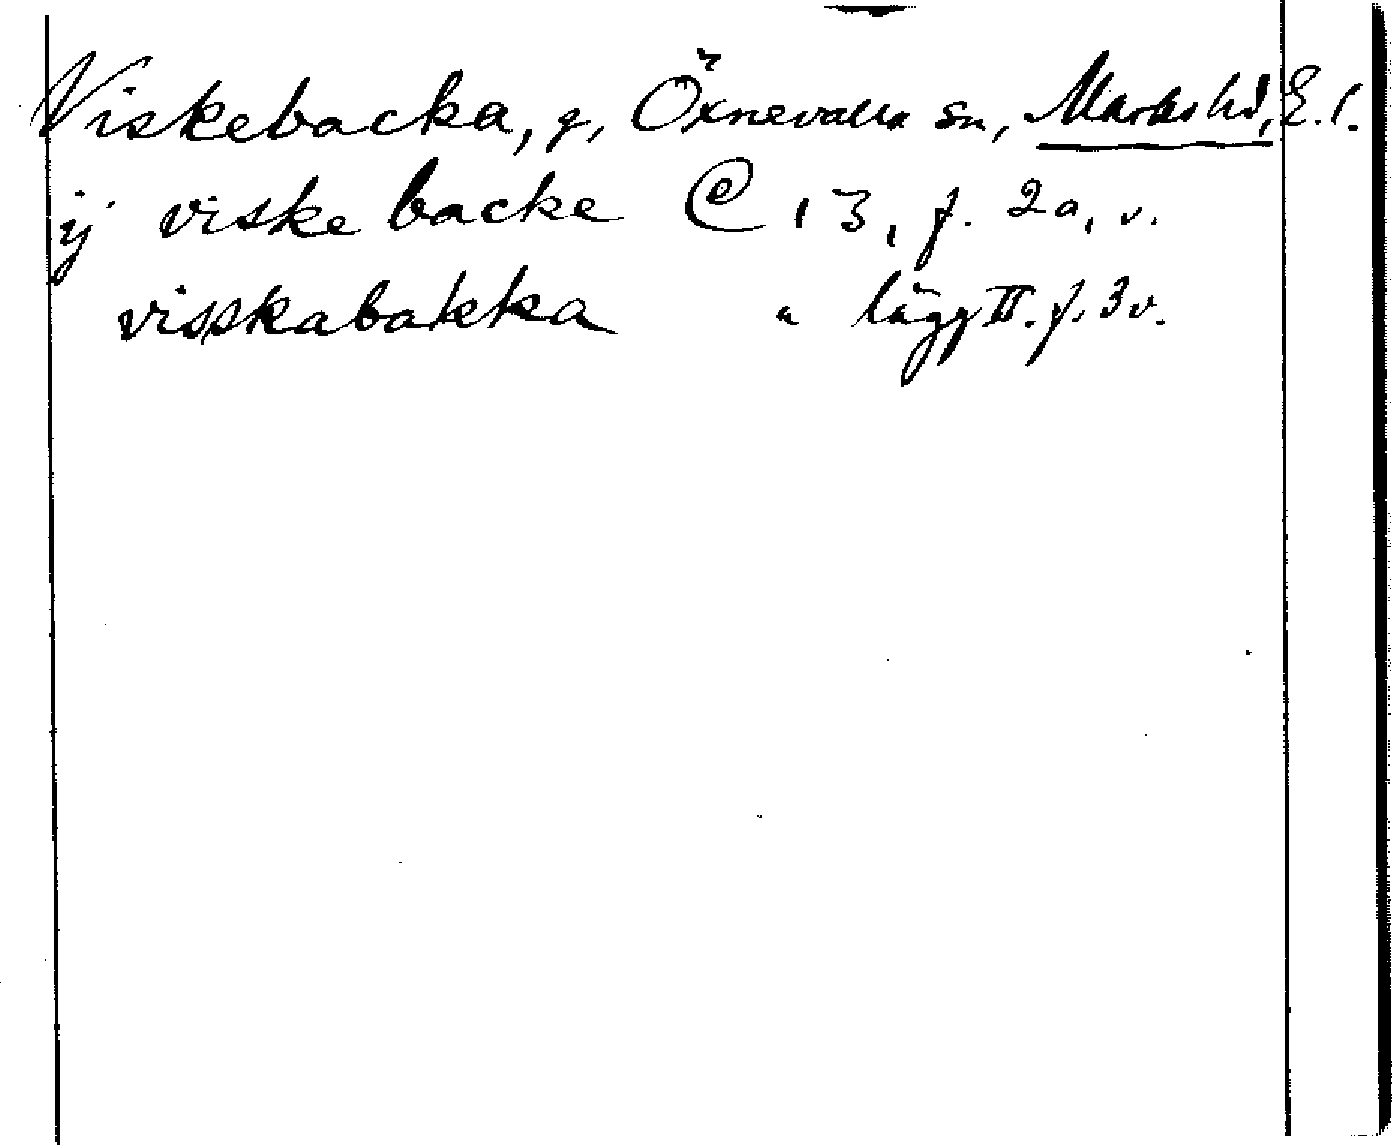 Viskebacka, g, Öxnevalla sn, Marks hd, E. l.
ij viske backe C 13, f. 2a, v.
visskabakka " lägg II. f. 3v.